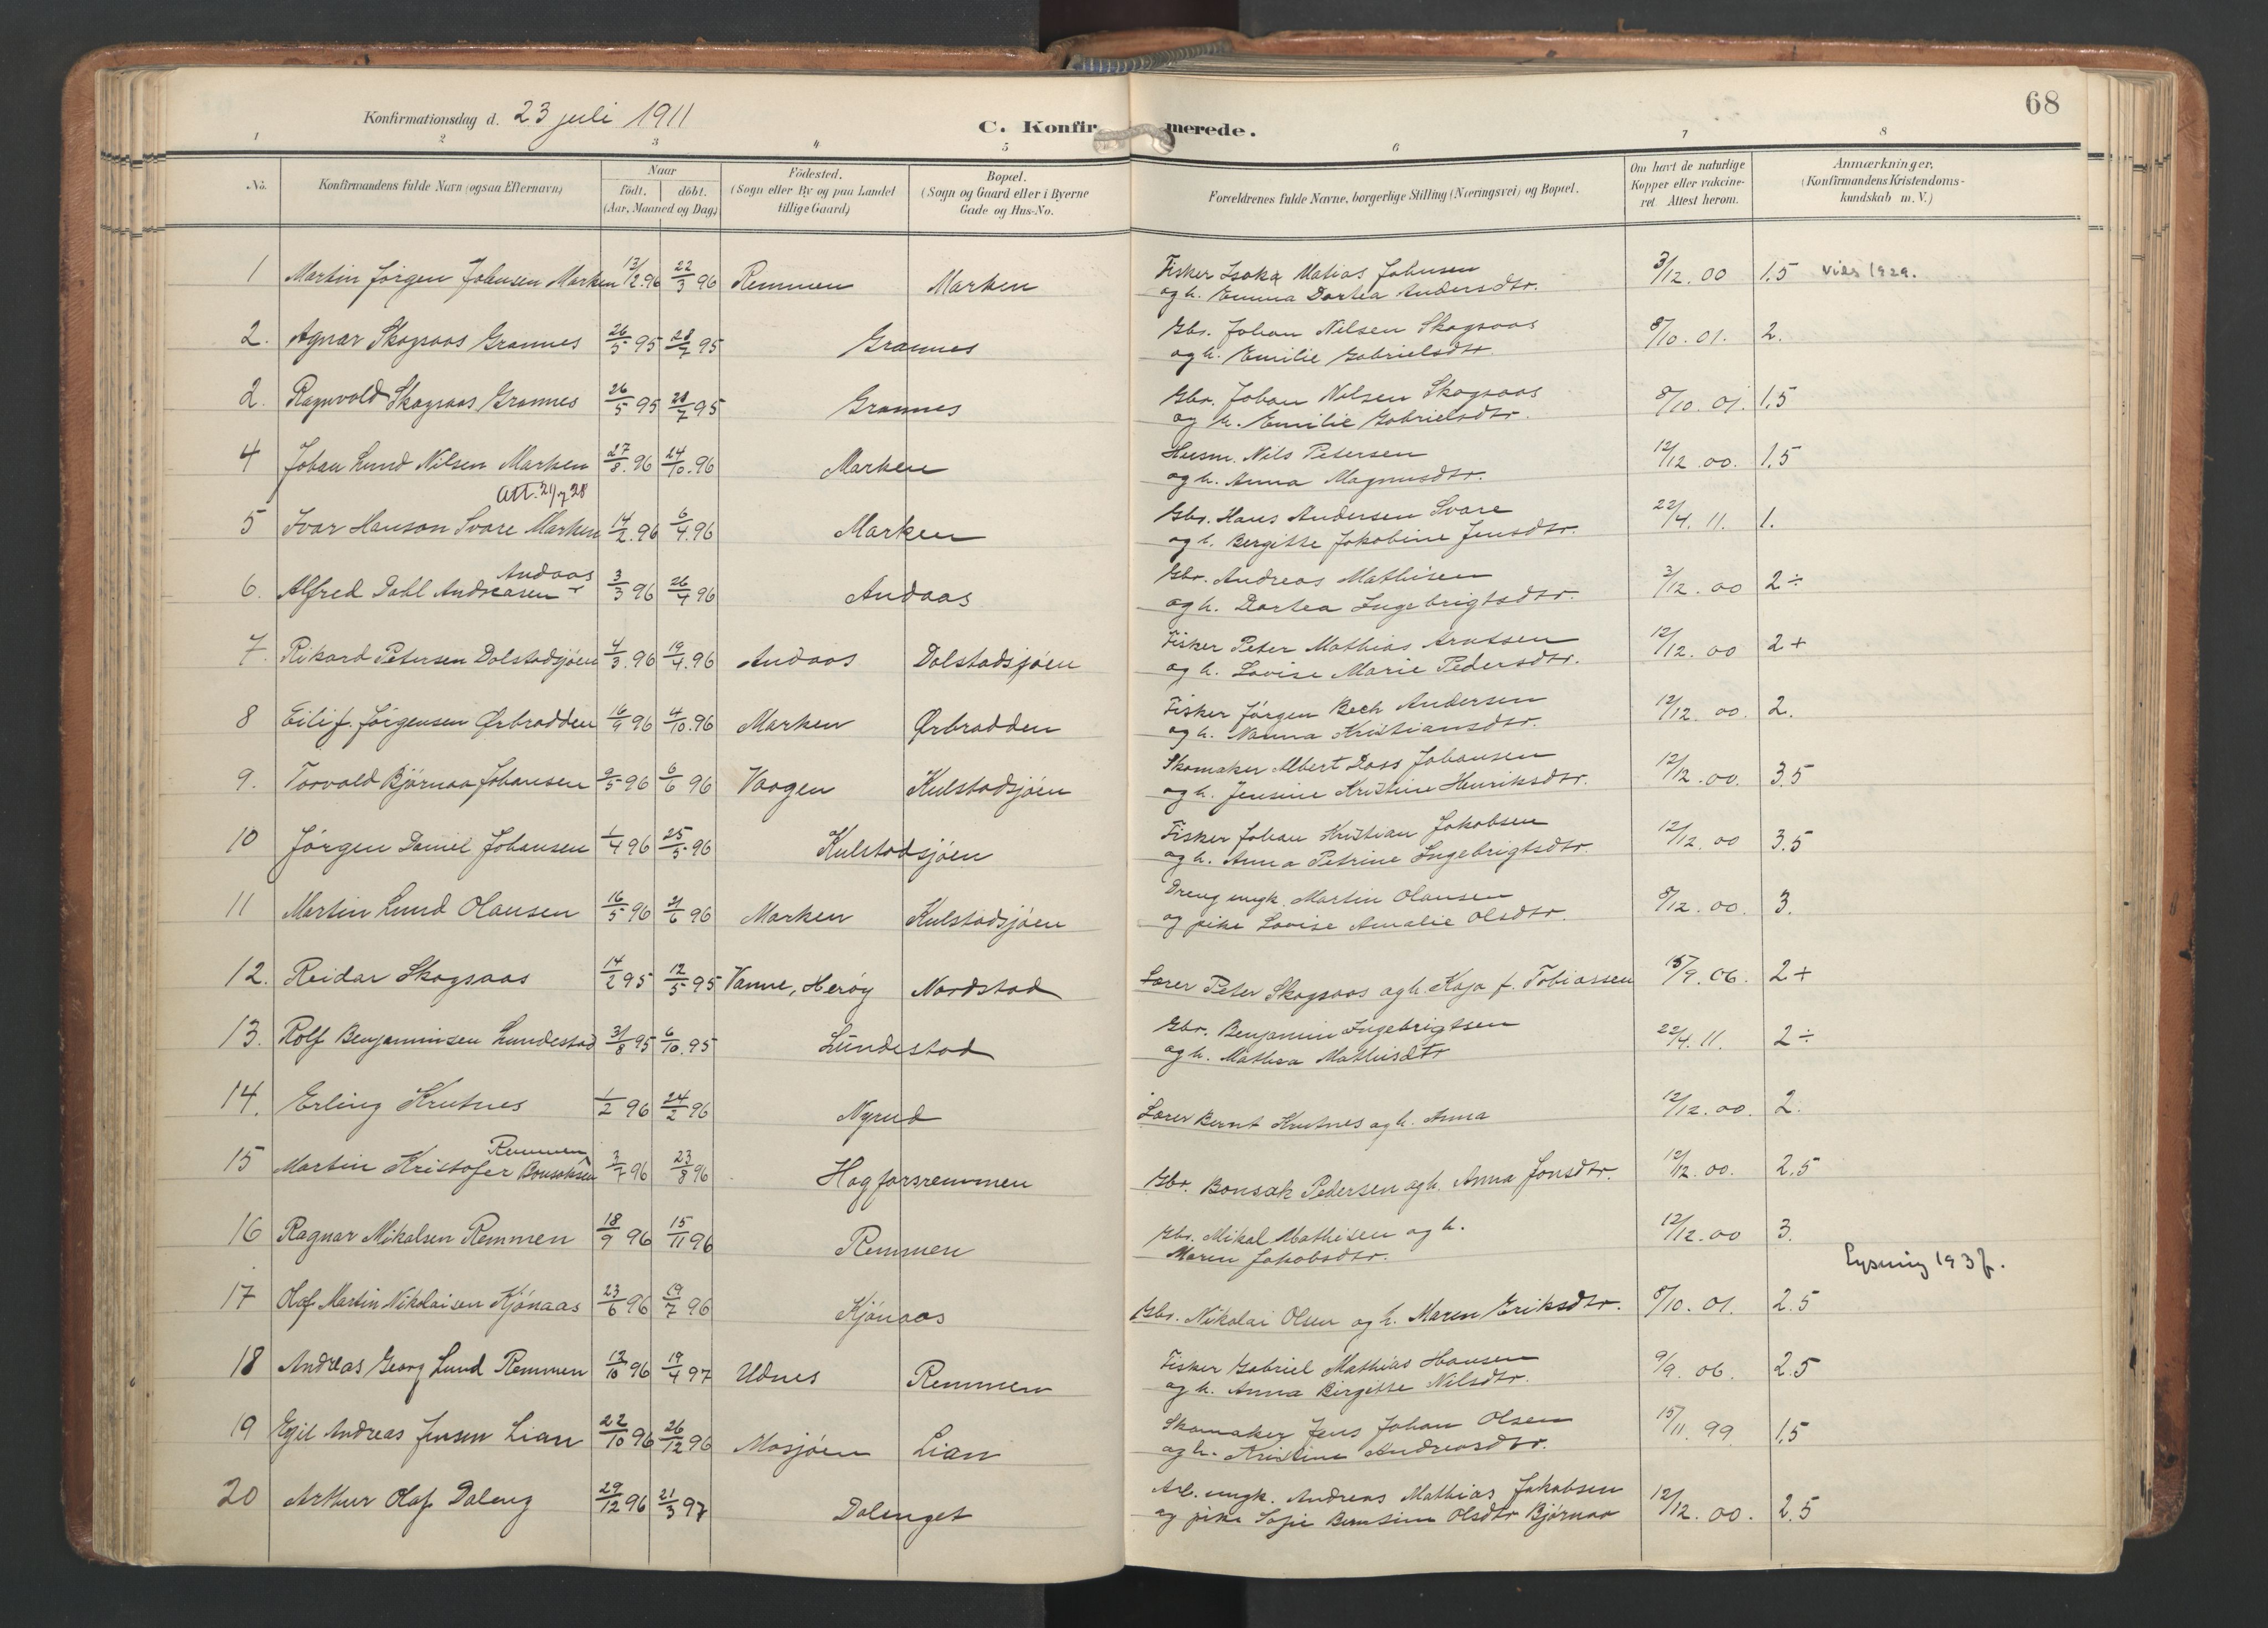 68
Konfirmationsdag d. 23 juli 1911
C. Konfirmerede.
1 2 3 4 5 6 7 8
No.
Konfirmandens fulde Navn (ogsaa Efternavn)
Naar
født. døbt.
(Aar, Maaned og Dag)
Fødested.
(Sogn eller By og paa Landet
tillige Gaard)
Bopæl.
(Sogn og Gaard eller i Byerne
Gade og Hus-No.
Forældrenes fulde Navne, borgerlige Stilling (Næringsvei) og Bopæl.
Om havt de naturlige
Kopper eller vakcine-
ret. Attest herom.
Anmærkninger.
(Konfirmandens Kristendoms-
kundskab m. V.)
1 Martin Jørgen Johnsen Marken 13/2.96 22/3 96 Remmen Marken Fisker Isaka Matias Johnsen 3/12. 00 1,5 Vies 1929.
og h. Emma Dortea Andersdtr.
2. Agnar Skogsaas Grannes 26/5 95 28/7 95 Grannes Gbr. Johan Nilsen Skogsaas 8/10. 01. 2.
og h. Emilie Gabrielsdtr.
2. Ragnvald Skogsaas Grannes 26/5 95 28/7 95 Grannes Gbr. Johan Nilsen Skogsaas 8/10. 01. 1,5
og h. Emilie Gabrielsdtr.
4 Johan Lund Nilsen Marken 27/8. 96 24/10. 96 Marken Husm. Nils Petersen 12/12. 00. 1,5
og h. Anna Magnusdtr.
Att. 21/7 28
5 Ivar Hanson Svare Marken 14/2. 96 6/4. 96 Marken Gbr. Hans Andersen Svare 22/4. 11. 1.
og h. Bergitte Jakobine Jensdtr.
Andaas
6. Alfred Dahl Andreasen 3/3 96 26/4 96 Andaas Gbr. Andreas Mathisen 3/12. 00 2 ÷
og h. Dortea Ingebrigtsdtr.
7. Rikard Petersen Dolstadsjøen 4/3. 96 19/4. 96 Andaas Dolstadsjøen Fisker Peter Mathias Arntsen 12/12. 00 2 +
og h. Lovise Marie Pedersdtr.
8 Eilif Jørgensen Ørbrodden 16/9 96 4/10. 96 Marken Ørbrodden Fisker Jørgen Bech Andersen 12/12. 00. 2.
og h. Nanna Kristiansdtr.
9. Torvald Bjørnaa Johansen 2/5 96 6/6 96 Vaagen Kulstadsjøen Skomaker Albert Dass Johansen 12/12. 00. 3.5
og h. Jensine Kristine Henriksdtr.
10 Jørgen Daniel Johansen 1/4 96 25/5 96 Kulstadsjøen Fisker Johan Kristian Jakobsen 12/12. 00 3.5
og h. Anna Petrine Ingebrigtsdtr.
11 Martin Lund Olausen 16/5 96 21/6 96 Marken Kulstadsjøen Dreng ungk. Martin Olausen 8/12. 00. 3.
og pike Lovise Amalie Olsdtr.
12. Reidar Skogsaas 14/2 95 12/5 95 Vanne, Herøy Nordstad Lærer Peter Skogsaas og h. Kaja f. Tobiassen 15/9. 06. 2 +
13. Rolf Benjaminsen Lundestad 31/8 95 6/10. 95 Lundestad Gbr. Benjamin Ingebrigtsen 22/4. 11. 2 ÷
og h. Mathea Mathisdtr
14. Erling Krutnes 1/2 96 24/2 96 Nyrud Lærer Bernt Krutnes og h. Anna 12/12. 00. 2.
Remmen
15 Martin Kristofer Bonsaksen 3/7 96 23/8 96 Hagforsremmen Gbr. Bonsak Pedersen og h. Anna Jonsdtr. 12/12. 00. 2.5
16 Ragnar Mikalsen Remmen 18/9 96 15/11 96 Remmen Gbr. Mikal Mathisen og h. 12/12. 00 3.
Maren Jakobsdtr.
Lysning 1937.
17 Olaf Martin Nikolaisen Kjønaas 23/6 96 19/7 96 Kjønaas Gbr. Nikolai Olsen og h. Maren Eriksdtr. 8/10. 01. 2.5
18 Andreas Georg Lund Remmen 13/10 96 19/4 97 Udnes Remmen Fisker Gabriel Mathias Hansen 9/9. 06. 2.5
og h. Anna Birgitte Nilsdtr.
19 Egil Andreas Jensen Lian 22/10 96 26/12 96 Mosjøen Lian Skomaker Jens Johan Olsen 15/11. 99 1,5
og h. Kristine Andreasdtr.
20 Arthur Olaf Daleng 29/12 96 21/3 97 Dalenget Arb. ungk. Andreas Mathias Jakobsen 12/12. 00. 2.5
og pike Sofie Berntine Olsdtr Bjørnaa